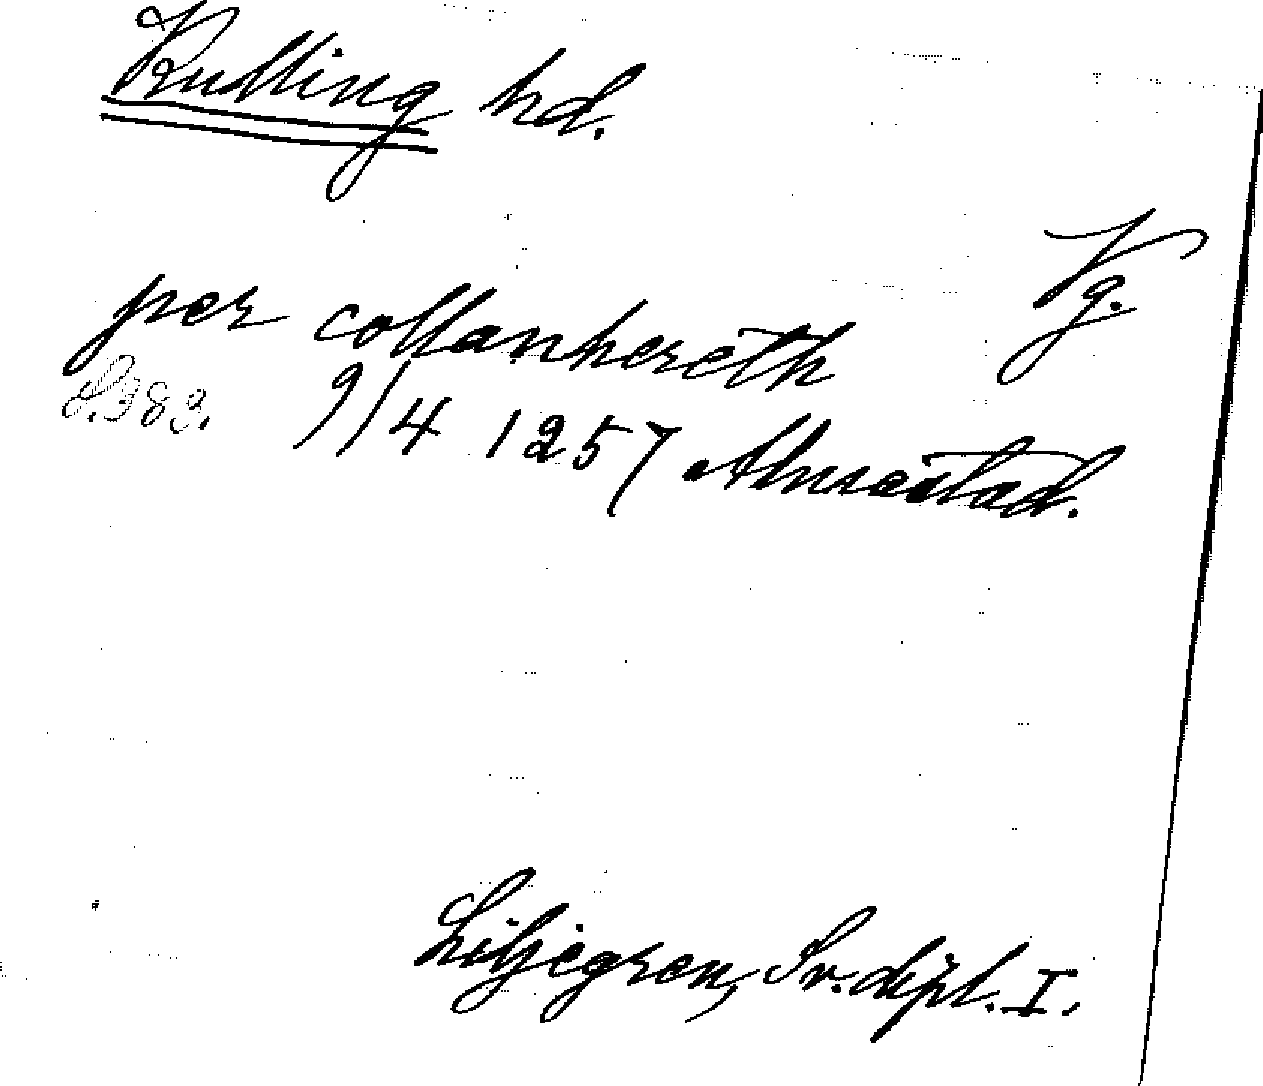 Kulling hd.
Vg.
per collanhereth
S. 383. 9/4 1257 Almestad.
Liljegren, Sv. dipl. I.